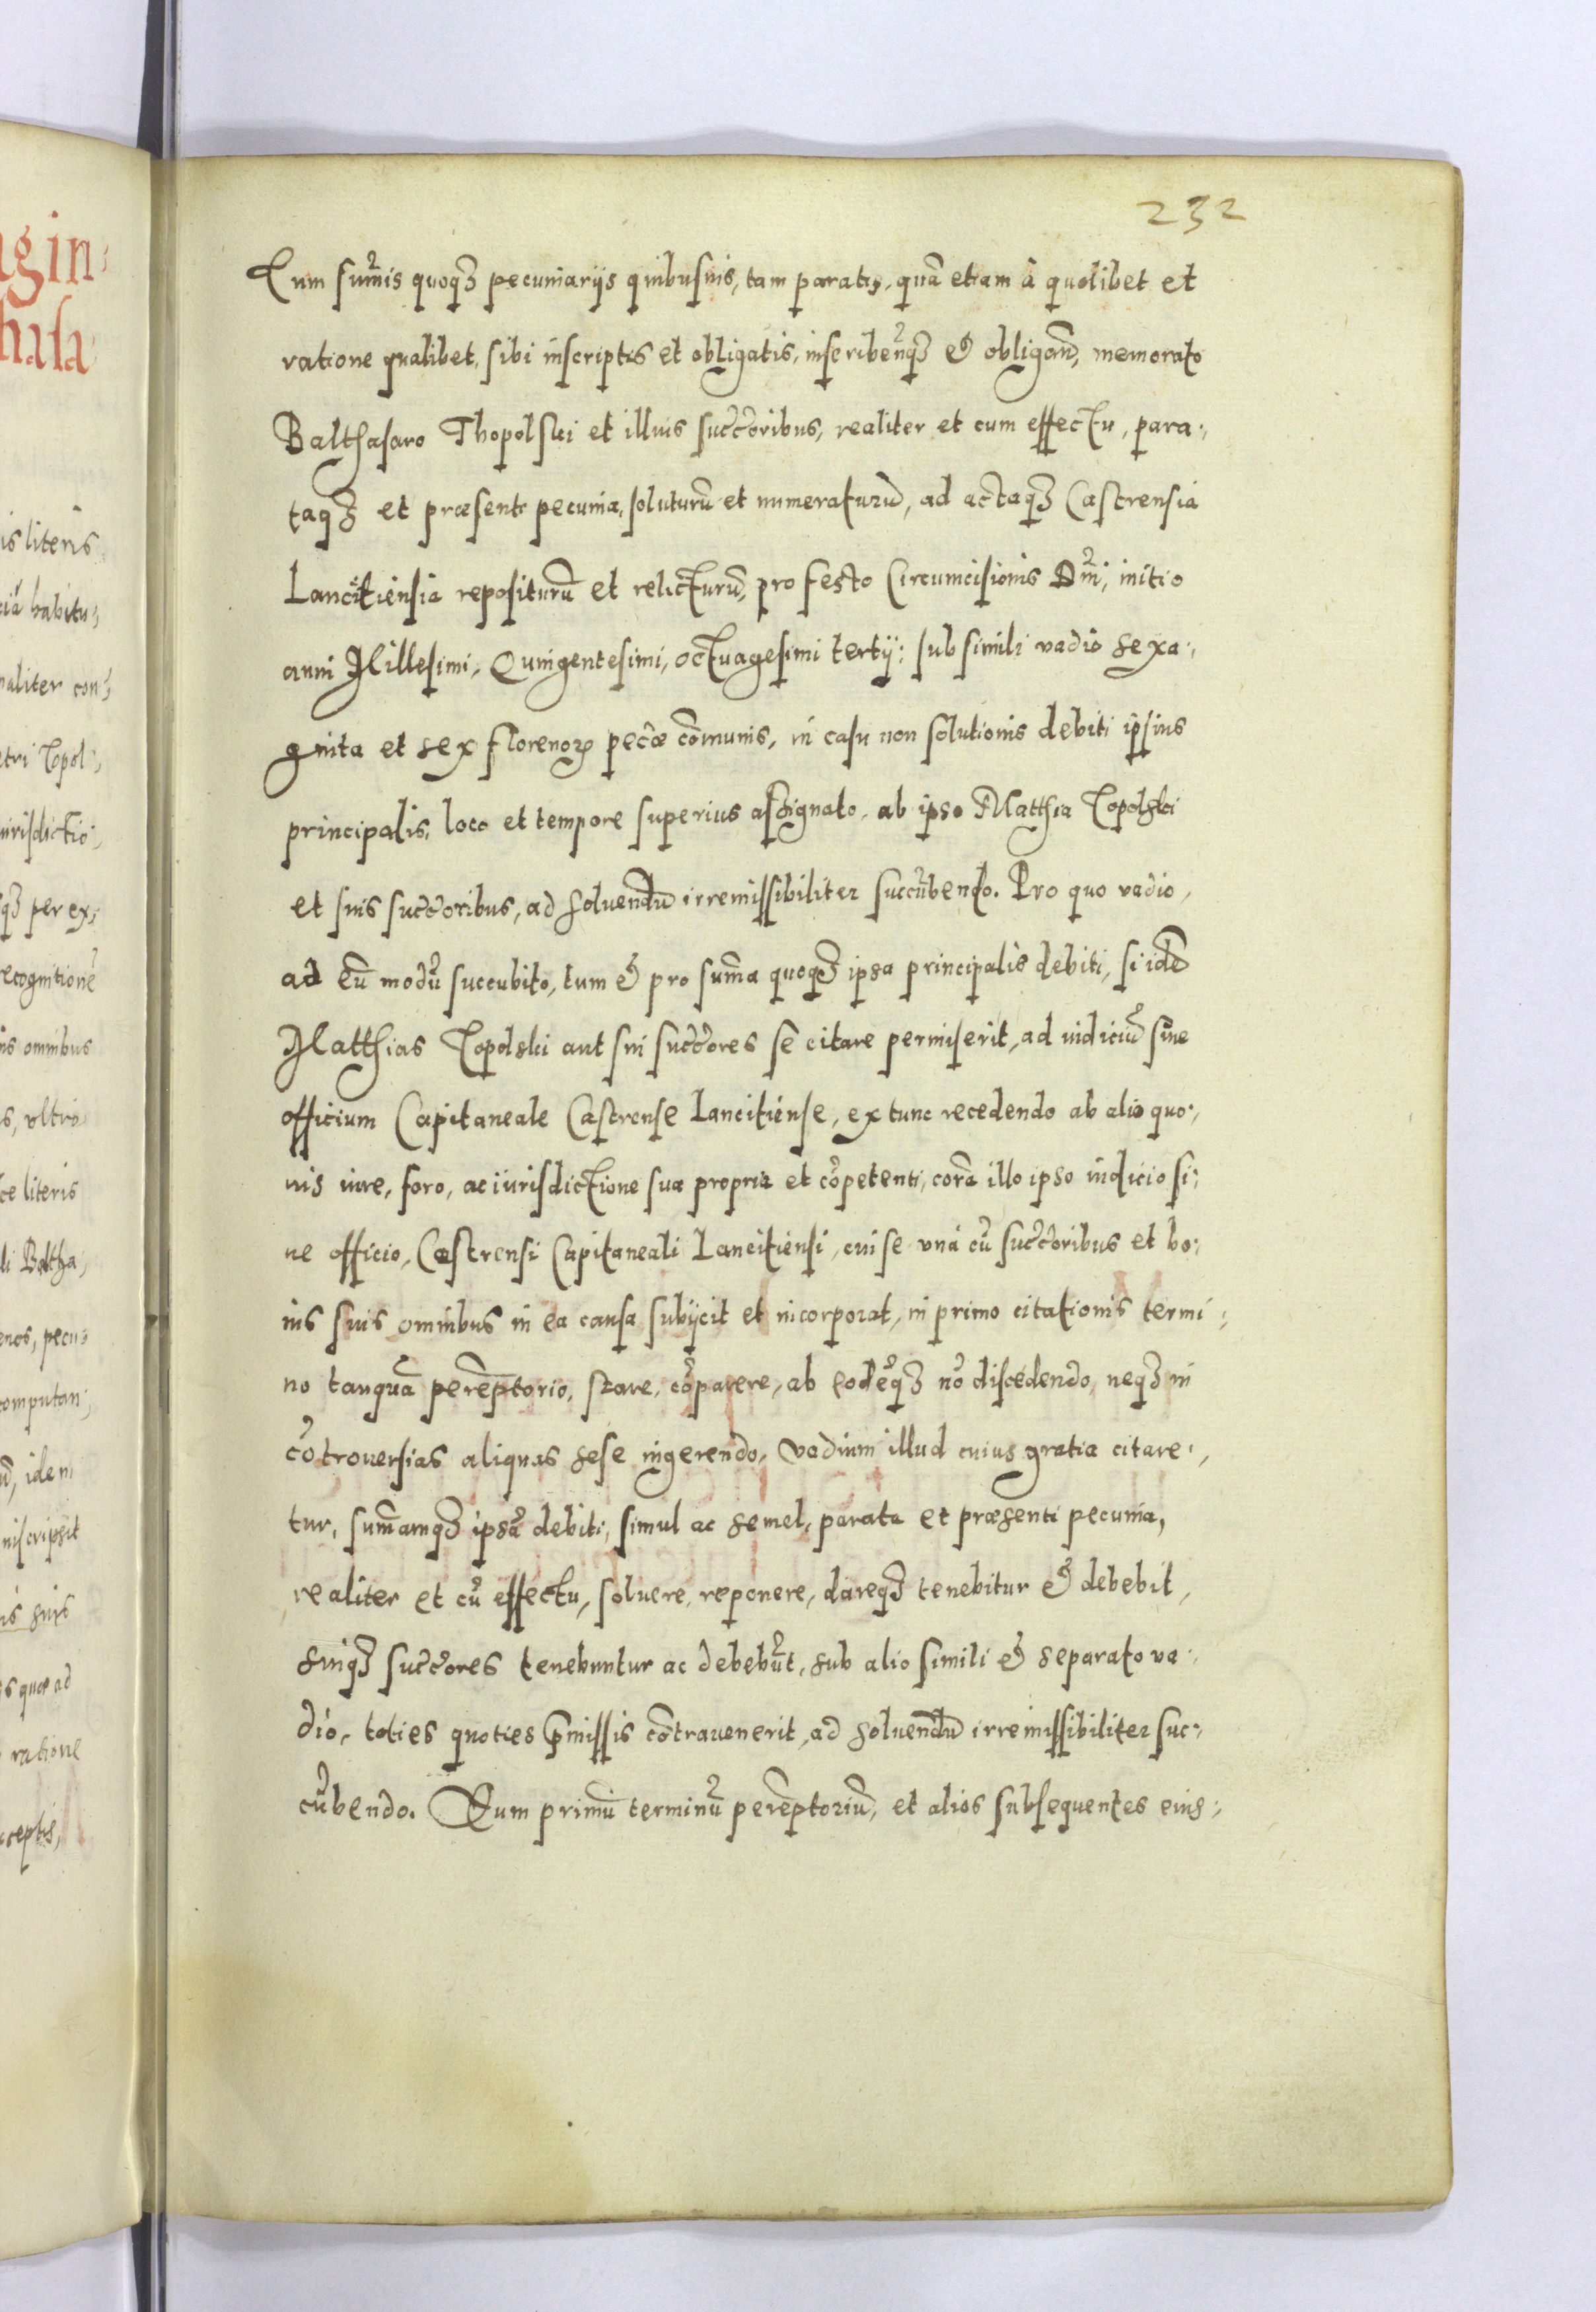 232
Tum sum̃is quoqȝ pecuniarijs quibusuis, tam paratis, quã etiam à quolibet et
ratione qualibet, sibi inscriptis et obligatis, inscribeñqȝ & obligan̄, memorato
Balthasaro Thopolski et illius succ̃oribus, realiter et cum effectu, para,
taqȝ et præsente pecunia, soluturũ et numeraturũ, ad actaqȝ Castrensia
Lancitiensia repositurũ et relicturũ, pro festo Circumcisionis Dñi, initio
anni Millesimi, Quingentesimi, octuagesimi tertij: sub simili vadio sexa,
ginta et sex florenoꝝ pec̃æ cõmunis, in casu non solutionis debiti ipsius
principalis, loco et tempore superius assignato, ab ipso Matthia Topolski
et suis succ̃oribus, ad soluendũ irremissibiliter succũbendo. Pro quo vadio,
ad eũ modũ succubito, tum & pro sum̃a quoqȝ ipsa principalis debiti, si idẽ
Matthias Topolski aut sui succ̃ores se citare permiserit, ad iudiciũ siue
officium Capitaneale Castrense Lancitiense, ex tunc recedendo ab alio quo,
uis iure, foro, ac iurisdictione sua propria et cõpetenti, corã illo ipso iudicio si,
ue officio, Castrensi Capitaneali Lancitiensi, cui se unà cũ succ̃oribus et bo,
nis suis omnibus in ea causa subijcit et incorporat, in primo citationis termi,
no tanquã perẽptorio, stare, cõparere, ab eodẽqȝ nõ discedendo, neqȝ in
cõtrouersias aliquas sese ingerendo, vadium illud cuius gratia citare,
tur, sum̃amqȝ ipsã debiti, simul ac semel, parata et præsenti pecunia,
realiter et cũ effectu, soluere, reponere, dareqȝ tenebitur & debebit,
suiqȝ succ̃ores tenebuntur ac debebũt, sub alio simili & separato va,
dio, toties quoties p̃missis cõtrauenerit, ad soluendũ irremissibiliter suc,
cũbendo. Quum primũ terminũ perẽptoriũ, et alios subsequentes eius,